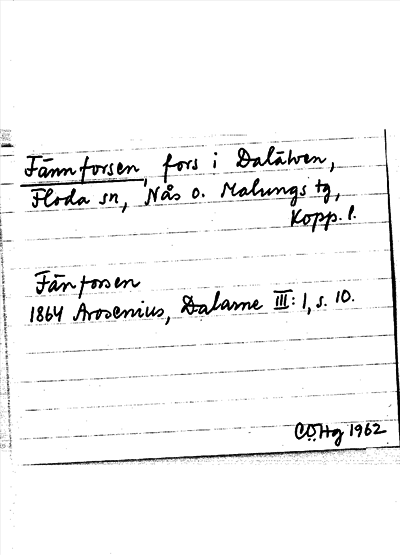 Fännforsen, fors i Dalälven,
Floda sn, Nås o. Malungs tg,
Kopp. l.
Fänforsen
1864 Arosenius, Dalarne III: 1, s. 10.
CÖHg 1962